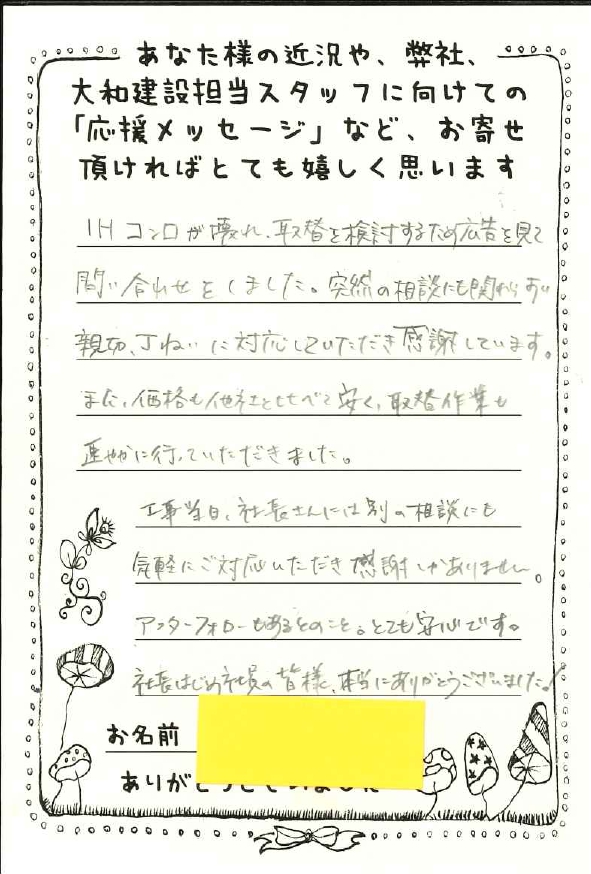 あなた様の近況や、弊社、
大和建設担当スタッフに向けての
「応援メッセージ」など、お寄せ
頂ければとても嬉しく思います
IHコンロが壊れ、取替を検討するため広告を見て
問い合わせをしました。突然の相談にも関わらず
親切、丁ねいに対応していただき感謝しています。
また、価格も他社とくらべて安く、取替作業も
速やかに行っていただきました。
工事当日、社長さんには別の相談にも
気軽にご対応いただき感謝しかありません。
アフターフォローもあるとのこと。とても安心です。
社長はじめ社員の皆様、本当にありがとうございました!
お名前
ありがとうございました